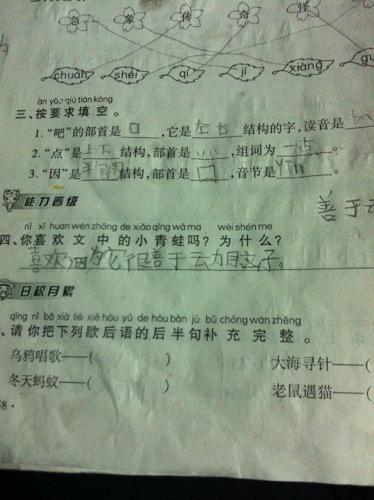 急 象 传 奇 怪
chuán shéi qí jí xiàng gu
àn yāo qiú tián kòng
三、按要求填空。
1.“吧”的部首是 口 ,它是 左右 结构的字,读音是
2.“点”是 上下 结构,部首是 灬 ,组词为 一点 。
3.“因”是 半包围 结构,部首是 囗 ,音节是 yīn 。
能力晋级
善于云
nǐ xǐ huan wén zhōng de xiǎo qīng wā ma wèi shén me
四、你喜欢文中的小青蛙吗?为什么?
喜欢因为它很善于云力月立子。
日积月累
qǐng nǐ bǎ xià liè xiē hòu yǔ de hòu bàn jù bǔ chōng wán zhěng
、请你把下列歇后语的后半句补充完整。
乌鸦唱歌——( ) 大海寻针——(
冬天蚂蚁——( ) 老鼠遇猫——(
58·